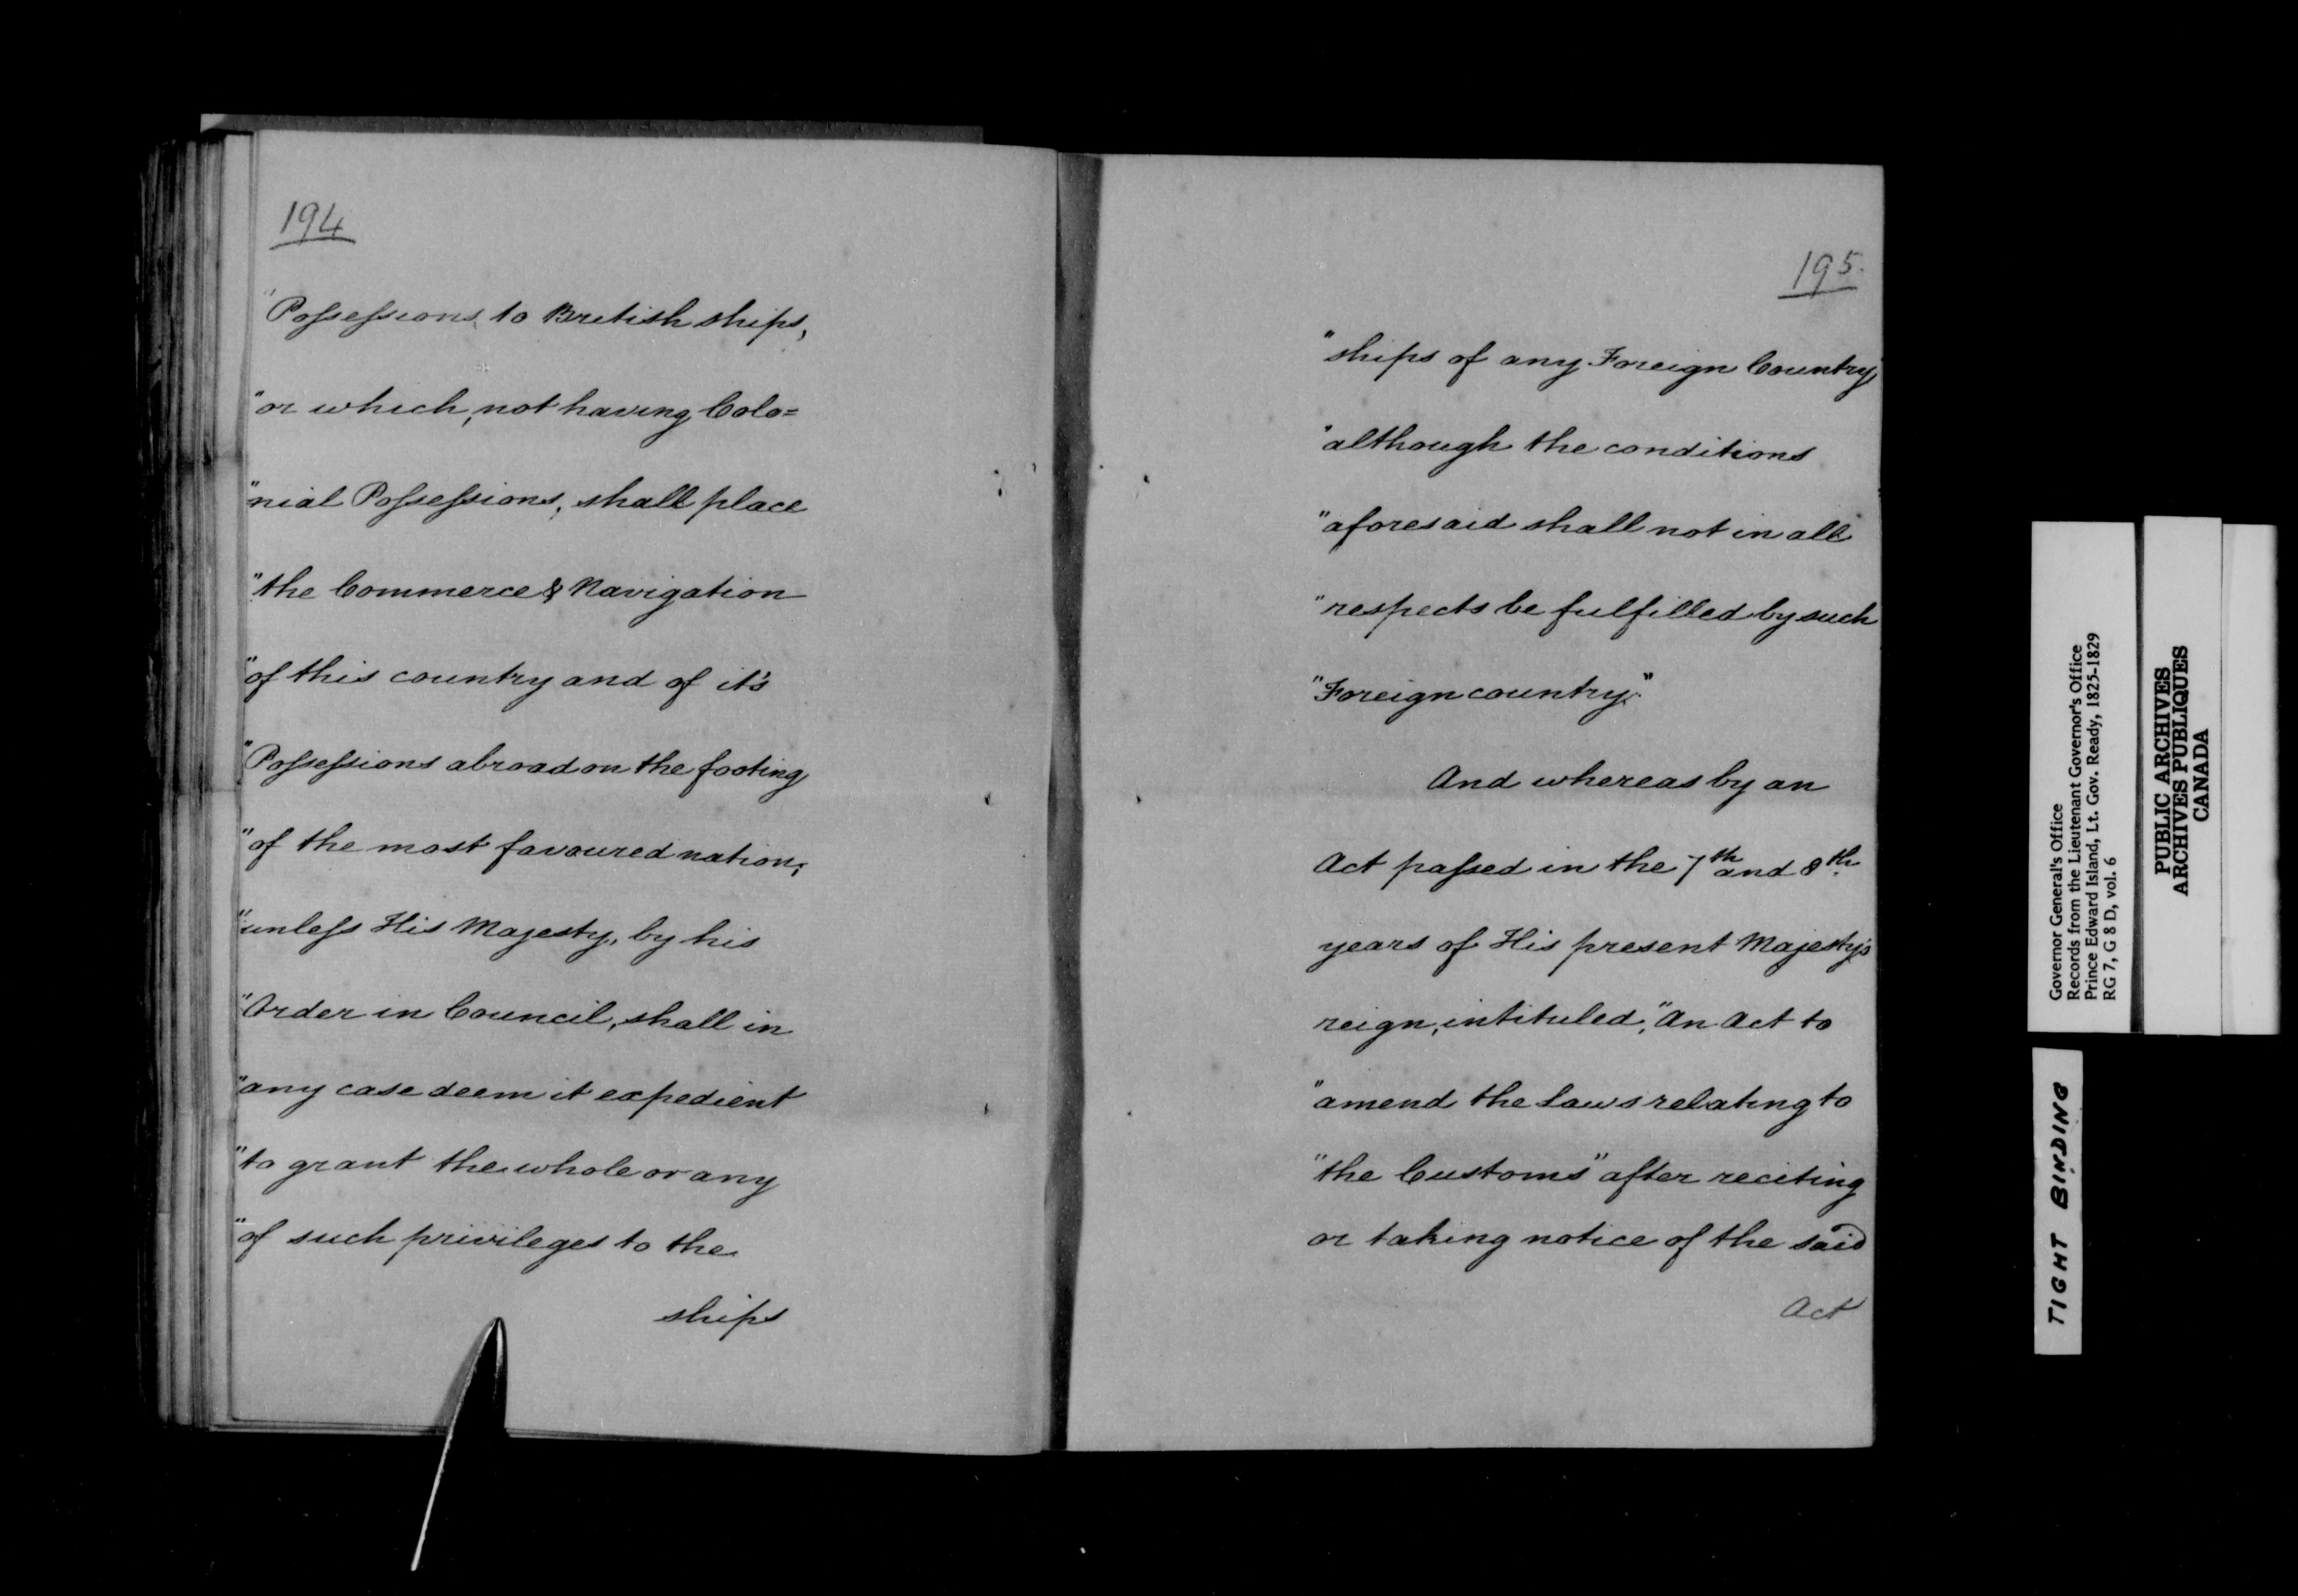 194
"Possessions to British ships,
"or which, not having Colo=
"nial Possessions, shall place
"the Commerce & Navigation
"of this country and of it's
"Possessions abroad on the footing
"of the most favoured nation;
"unless His Majesty, by his
"Order in Council, shall in
"any case deem it expedient
"to grant the whole or any
"of such privileges to the
ships
195.
"ships of any Foreign Country,
"although the conditions
"aforesaid shall not in all
"respects be fulfilled by such
"Foreign country."
And whereas by an
Act passed in the 7th and 8th
years of His present Majesty's
reign, intituled, "An Act to
"amend the Laws relating to
"the Customs" after reciting
or taking notice of the said
Act
Governor General's Office
Records from the Lieutenant Governor's Office
Prince Edward Island, Lt. Gov. Ready, 1825-1829
RG 7, G 8 D, vol. 6
PUBLIC ARCHIVES
ARCHIVES PUBLIQUES
CANADA
TIGHT BINDING